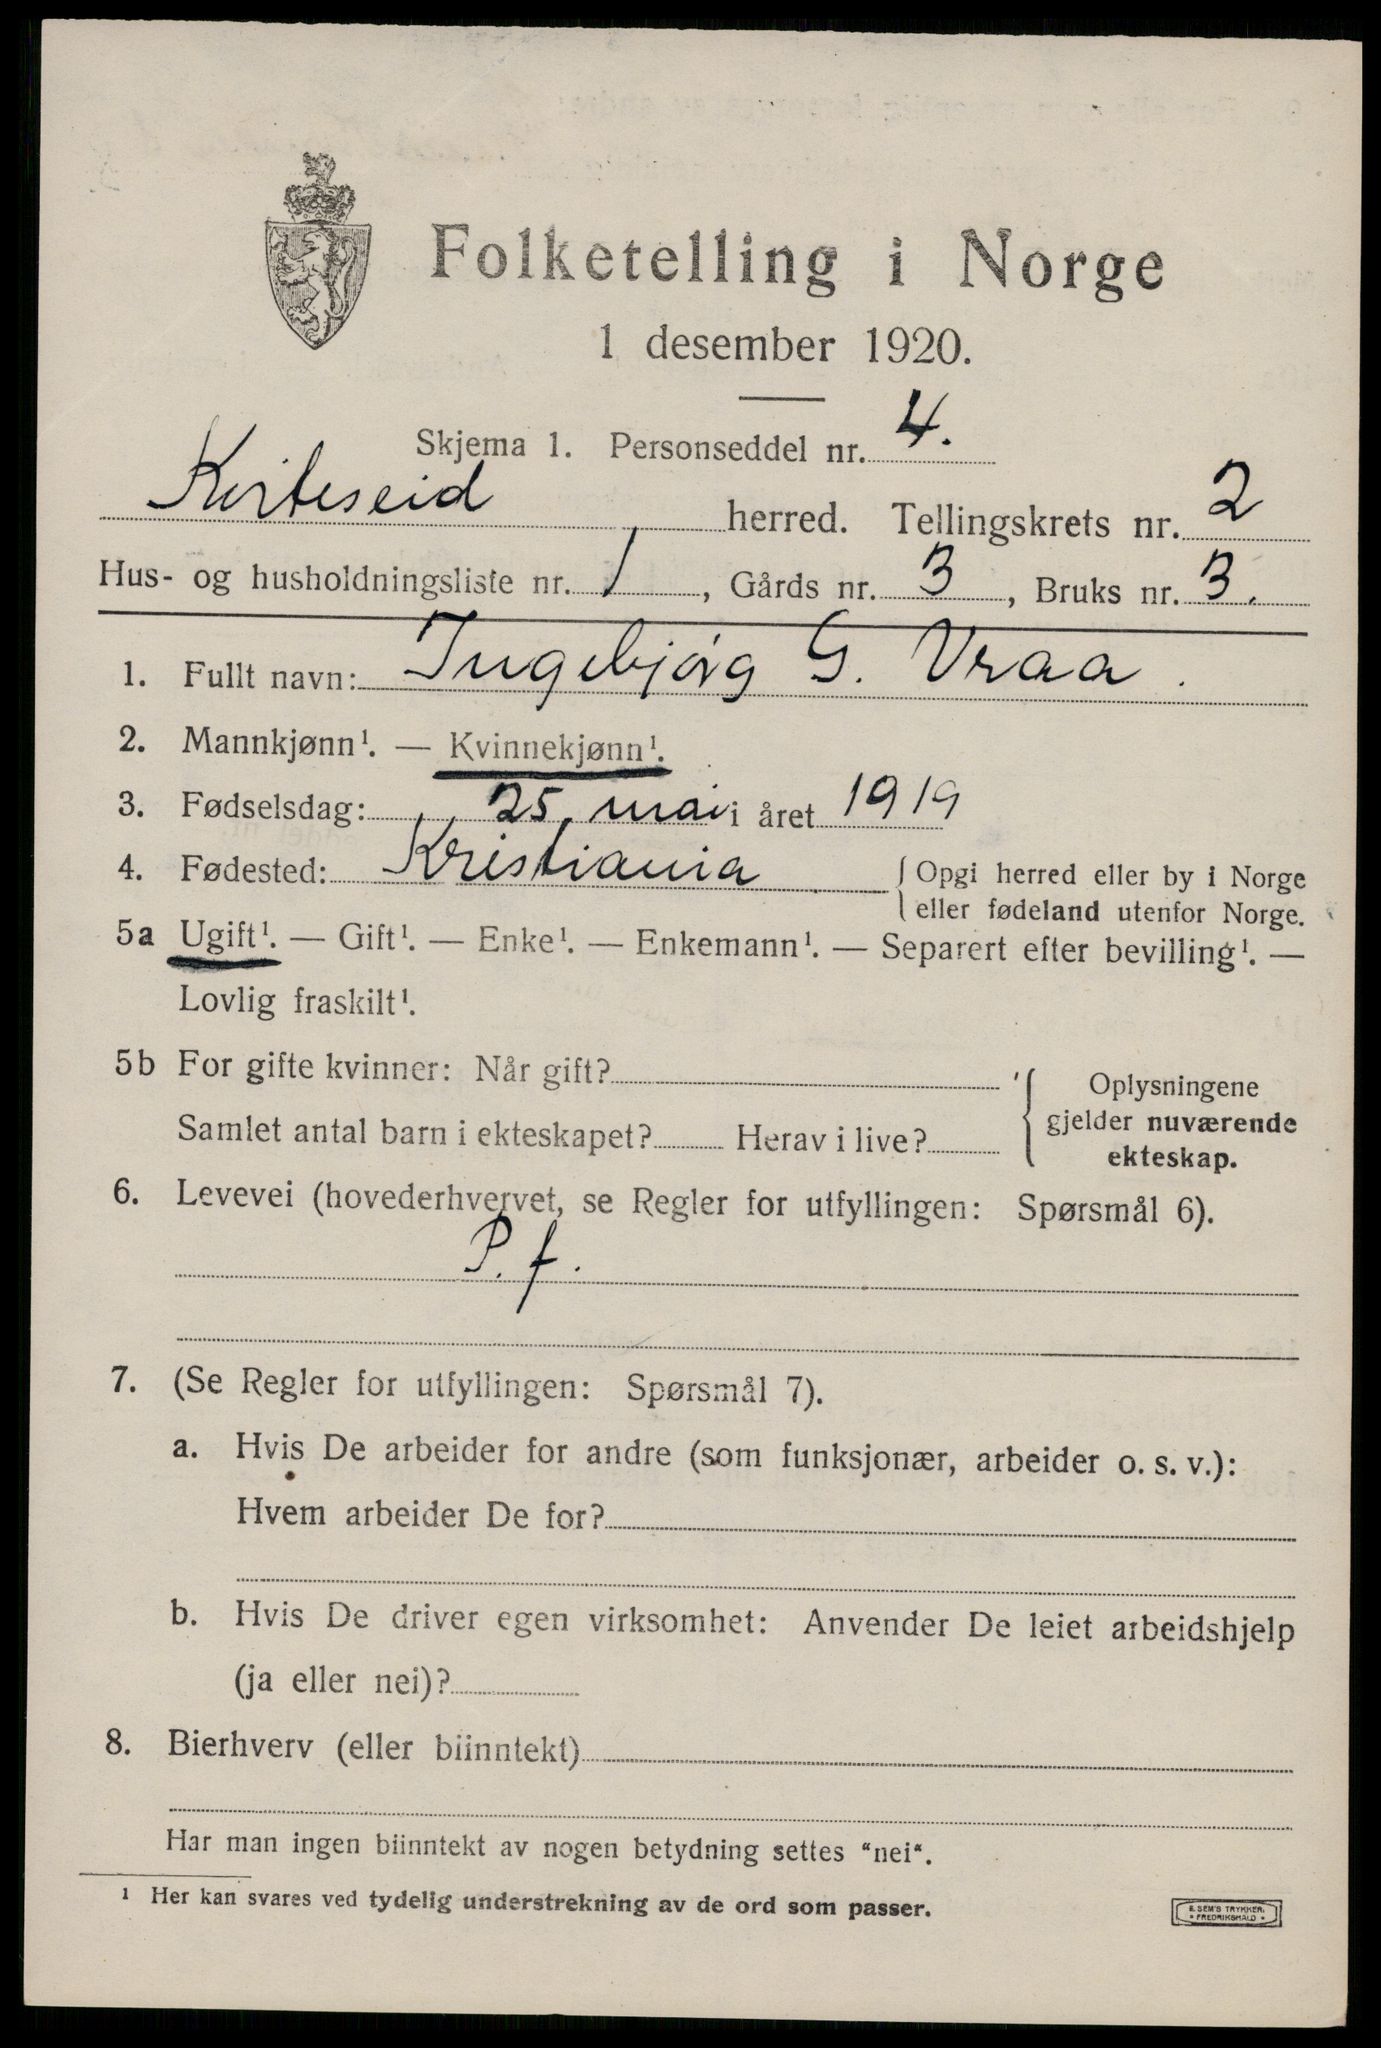 Folketelling i Norge
1 desember 1920.
Skjema 1. Personseddel nr. 4.
Kviteseid herred. Tellingskrets nr. 2
Hus- og husholdningsliste nr. 1, Gårds nr. 3, Bruks nr. 3.
1. Fullt navn: Ingebjørg G. Vraa.
2. Mannkjønn¹. — Kvinnekjønn¹.
3. Fødselsdag: 25. mai i året 1919
4. Fødested: Kristiania { Opgi herred eller by i Norge
eller fødeland utenfor Norge.
5a Ugift¹. — Gift¹. — Enke¹. — Enkemann¹. — Separert efter bevilling¹. —
Lovlig fraskilt¹.
5b For gifte kvinner: Når gift?
Samlet antal barn i ekteskapet? Herav i live?
Oplysningene
gjelder nuværende
ekteskap.
6. Levevei (hovederhvervet, se Regler for utfyllingen: Spørsmål 6).
P. f.
7. (Se Regler for utfyllingen: Spørsmål 7).
a. Hvis De arbeider for andre (som funksjonær, arbeider o. s. v.):
Hvem arbeider De for?
b. Hvis De driver egen virksomhet: Anvender De leiet arbeidshjelp
(ja eller nei)?
8. Bierhverv (eller biinntekt)
Har man ingen biinntekt av nogen betydning settes "nei".
¹ Her kan svares ved tydelig understrekning av de ord som passer.
E. SEM'S TRYKKERI
• FREDRIKSHALD •